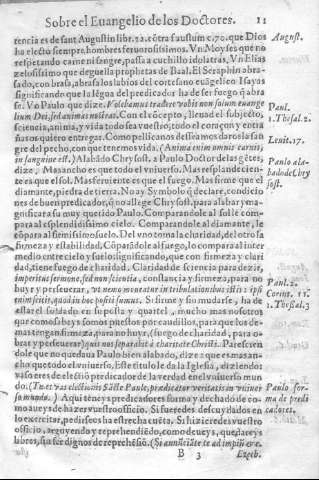 Sobre el Euangelio de los Doctores. 11
rencia es de sant Augustin lib. 22. côtra faustum c. 70. que Dios
ha electo siempre hombres feruorosissimos. Vn Moyses que no
respetando carne ni sangre, passa a cuchillo idolatras, Vn Elias
zelosissimo que deguella prophetas de Baal. El Seraphin abra-
sado, con brasa, abrasa los labios del cortesano euāgelico Isayas
significando que la lēgua del predicador ha de ser fuego q̄ abra
se. Vn Paulo que dize. Volebamus tradere vobis non solum euange
lium Dei, sed animas nostras. Con el cōcepto, lleuad el subjecto,
sciencia, animā, y vida todo sea vuestro, todo el coraçon y entra
ñas os quiero entregar. Como pellicanos desseamos daros la san
gre del pecho, con que tenemos vida. (Anima enim omnis carnis,
in sanguine est.) Alabādo Chrysost. a Paulo Doctor de las gētes,
dize, Mas ancho es que todo el vniuerso. Mas resplandecien-
te es que el sol. Mas feruiente es que el fuego. Mas firme que el
diamante, piedra de tierra. No ay Symbolo q̄ declare, condicio
nes de buen predicador, q̄ no allege Chrysost. para alabar y ma-
gnificar a su muy querido Paulo. Comparandole al sol le com-
para al esplendidissimo cielo. Comparandole al diamante, le
cōpara al firmissimo suelo. Del vno toma la charidad, del otro la
firmeza y estabilidad, Cōparādole al fuego, lo compara al inter
medio entre cielo y suelo significando, que con firmeza y clari
dad, tiene fuego de charidad. Claridad de sciencia para dezir,
imperitus sermone, sed non scientia, constancia y firmeza, para no
huyr y perseuerar, vt nemo moueatur in tribulationibus istis: ipsi
enim scitis, quod in hoc positi sumus. Si firme y sin mudarse, ha de
estar el soldado en su posta y quartel, mucho mas nosotros
que como sabeys somos puestos por caudillos, para que los de-
mas tengan firmeza, para no huyr, fuego de charidad, para o-
brar y perseuerar) quis nos separabit a charitate Christi. Paresciēn
dole que no quedaua Paulo bien alabado, dize a que es mas an-
cho que todo el vniuerso. Este titulo le da la Iglesia, diziendo:
vaso eres de electiō predicador de la verdad en el vniuerso mun
do. (Tu es vas electionis Sācte Paule, praedicator veritatis in vniuer
so mundo.) Aqui teneys predicadores forma y dechado de co-
mo aueys de hazer vuestro officio. Si fueredes descuydados en
los exercitar, pediros os ha estrecha cuēta. Si hizieredes vuestro
officio, arguyendo y reprehendiēdo, como deueys, quedareys
libres, sin ser dignos de reprehēsiō. (Si annūciāte te ad impiū &c.
B 3 Ezech.
August.
Paul.
1. Thesal. 2.
Leuit. 17.
Paulo ala-
bado de Chry
sost.
Paul. 2.
Corint. 11.
1. Thesal. 3
Paulo for-
ma de predi
cadores.